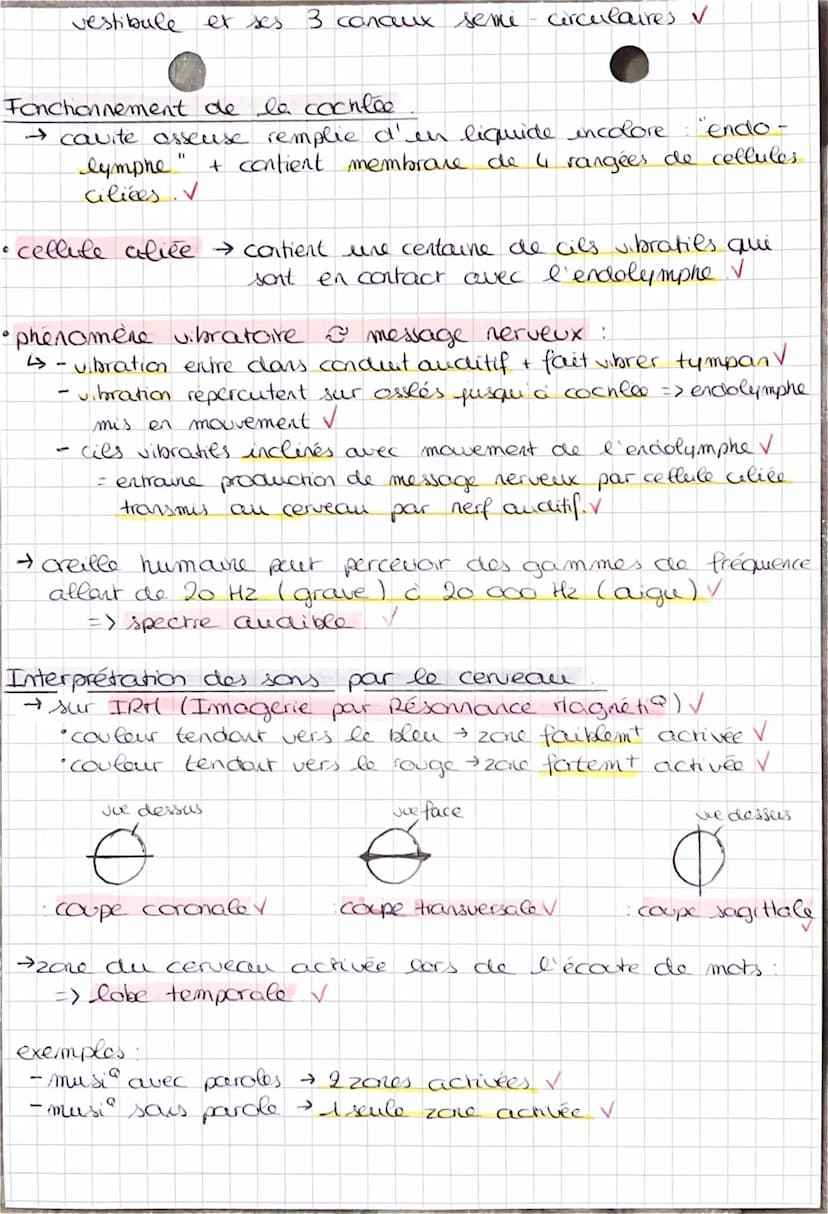 vestibule et ses 3 canaux semi-circulaires ✓
Fonctionnement de la cochlée.
→ cavité osseuse remplie d'un liquide incolore : "endo-
lymphe" + contient membrane de 4 rangées de cellules
ciliées. ✓
• cellule ciliée → contient une centaine de cils vibratils qui
sont en contact avec l'endolymphe ✓
• phénomène vibratoire message nerveux :
↳ - vibration entre dans conduit auditif + fait vibrer tympan ✓
- vibration répercutent sur osslés jusqu'à cochlée => endolymphe
mis en mouvement ✓
- cils vibratils inclinés avec mouvement de l'endolymphe ✓
= entraine production de message nerveux par cellule ciliée
transmis au cerveau par nerf auditif. ✓
→ oreille humaine peut percevoir des gammes de fréquence
allant de 20 Hz (grave) à 20 000 Hz (aigu) ✓
=> spectre audible ✓
Interprétation des sons par le cerveau.
→ sur IRM (Imagerie par Résonnance Magnétiq) ✓
• couleur tendant vers le bleu → zone faiblemt activée ✓
• couleur tendant vers le rouge → zone fortemt activée ✓
vue dessus vue face vue dessus
: coupe coronale ✓ : coupe transversale ✓ : coupe sagittale ✓
→ zone du cerveau activée lors de l'écoute de mots :
=> lobe temporale ✓
exemples :
- musiq avec paroles → 2 zones activées ✓
- musiq sans parole → 1 seule zone activée ✓